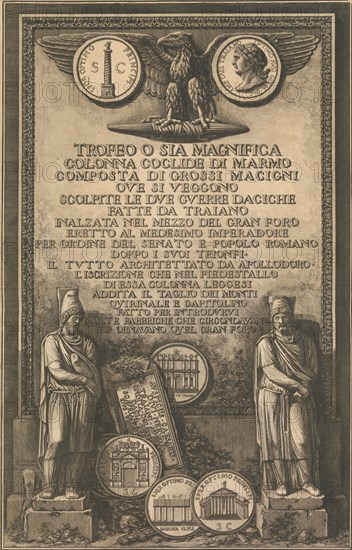 S P Q R OPTIMO PRINCIPI
S C
TROFEO O SIA MAGNIFICA
COLONNA COCLIDE DI MARMO
COMPOSTA DI GROSSI MACIGNI
OVE SI VEGGONO
SCOLPITE LE DUE GUERRE DACICHE
FATTE DA TRAIANO
INALZATA NEL MEZZO DEL GRAN FORO
ERETTO AL MEDESIMO IMPERADORE
PER ORDINE DEL SENATO E POPOLO ROMANO
DOPPO I SUOI TRIONFI·
IL TUTTO ARCHITETTATO DA APOLLODORO·
L'ISCRIZIONE CHE NEL PIEDESTALLO
DI ESSA COLONNA LEGGESI
ADDITA IL TAGLIO DEI MONTI
QUIRINALE E CAPITOLINO
FATTO PER INTRODURVI
MOLTE FABBRICHE CHE CIRCONDAVANO
ED ORNAVANO QUEL GRAN FORO
SC
BASILICA VLPIA
SPQR OPTIMO PRINCIPI
S C